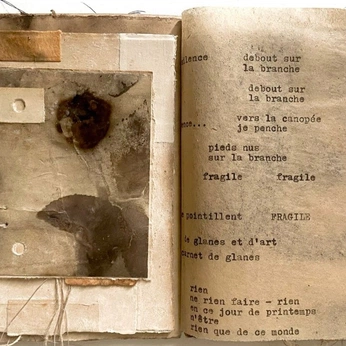 debout sur
la branche
debout sur
la branche
vers la canopée
je penche
pieds nus
sur la branche
fragile fragile
pointillent FRAGILE
de glanes et d'art
carnet de glanes
rien
ne rien faire - rien
en ce jour de printemps
n'être
rien que de ce monde